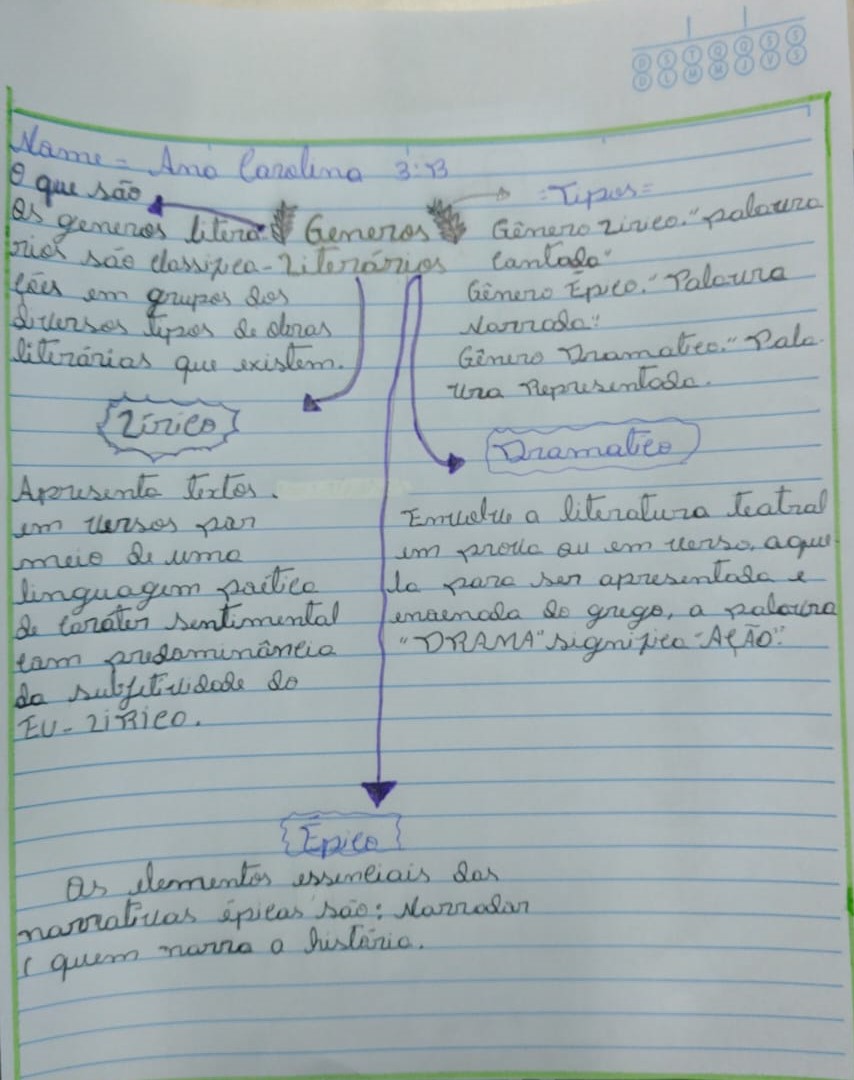 D S T Q Q S S
D L M M J V S
Name - Ana Carolina 3:B
O que são
Os generos literá
rios são classifica-
ções em grupos dos
diversos tipos de obras
literárias que existem.
Generos
Literários
=Tipos=
Gênero Lírico." palavra
Cantada"
Gênero Épico." Palavra
Narrada"
Gênero Dramatico." Pala
vra Representada.
Lírico
Apresenta textos.
em versos por
meio de uma
linguagem poética
de caráter sentimental
com predominância
da subjetividade do
EU-LÍRICO.
Dramatico
Envolve a literatura teatral
em prova ou em verso, aque
la para ser apresentada e
encenada do grego, a palavra
"DRAMA" significa "AÇÃO"
Épico
Os elementos essenciais das
narrativas épicas são: Narrador
( quem narra a história.